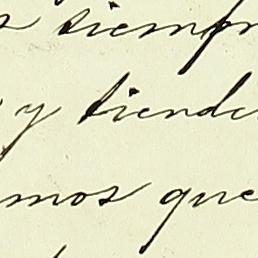 siempr
y tiende
mos que